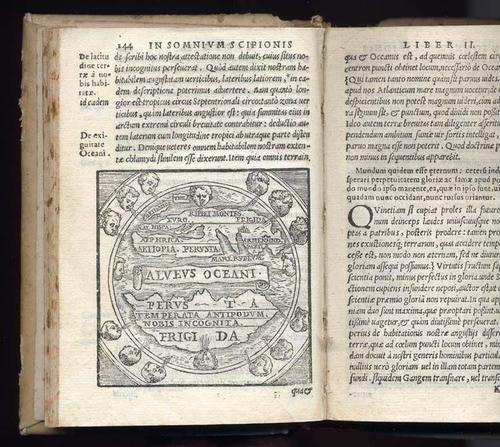 144 IN SOMNIVM SCIPIONIS
De latitu
dine ter-
ræ à no-
bis habi-
tatæ.
id eadem
De exi-
guitate
Oceani.
de scribi hoc nostra attestatione non debuit, cuius situs no-
bis incognitus perseuerat. Quòd autem dixit nostram ha-
bitabilem angustam uerticibus, lateribus latiorem, in ea-
dem descriptione poterimus aduertere. nam quanto lon-
gior est tropicus circus Septentrionali circo: tanto zona uer-
ticibus, quàm lateribus angustior est: quia summitas eius in
arctum extremi circuli breuitate contrahitur: deductio au-
tem laterum cum longitudine tropici ab utraque parte disten
ditur. Denique ueteres omnem habitabilem nostram exten-
tæ chlamydi similem esse dixerunt. Item quia omnis terra in
RIPHEI MONTES
FRIGIDA
EVRO
HISPA
APHRICA
AETIOPIA PERVSTA
MARE RVBRVM
ALVEVS OCEANI
PERVS T A
TEMPERATA ANTIPODVM
NOBIS INCOGNITA
FRIGI DA
LIBER II.
qua & Oceanus est, ad quemuis cælestem circ
centron puncti obtinet locum, necessariò de Ocean
{Qui tamen tanto nomine quàm sit paruus uides
apud nos Atlanticum mare magnum uocetur: de
despicientibus non potest magnum uideri, cùm
ra signum sit, & punctum, quod diuidi non possi
Ideo autem terræ breuitas tam diligenter asseri
pendendum ambitum famæ uir fortis intelligat,
paruo magna esse non poterit. Quod doctrinæ
non minus in sequentibus apparebit.
Mundum quidem esse æternum: cetera inde
sperari perpetuitatem gloriæ ac famæ apud po
do mundo ipso manente, ea, quæ in ipso sunt, ui
quadam nunc occidant, nunc rursus oriantur.
QVinetiam si cupiat proles illa futuror
num deinceps laudes uniuscuiusque no
ptas à patribus, posteris prodere: tamen prop
nes exustionesq; terrarum, quas accidere tempo
cesse est, non modò non æternam, sed ne diuturn
gloriam assequi possumus.} Virtutis fructum sap
scientia ponit, minus perfectus in gloria. unde S
ctionem cupiens infundere nepoti, auctor est, ut c
scientiæ præmio gloriā non requirat. In qua ap
miam duo sunt maxima, quæ præoptari possint, ut
tissimè uagetur, & quàm diutissimè perseueret
perius de habitationis nostræ angustijs disseren
terra, quæ ad cœlum puncti locum obtinet, mini
dam docuit à nostri generis hominibus particula
nullius uerò gloriam uel in illam totam partem
fundi. siquidem Gangem transnare, uel transce
quæ
K